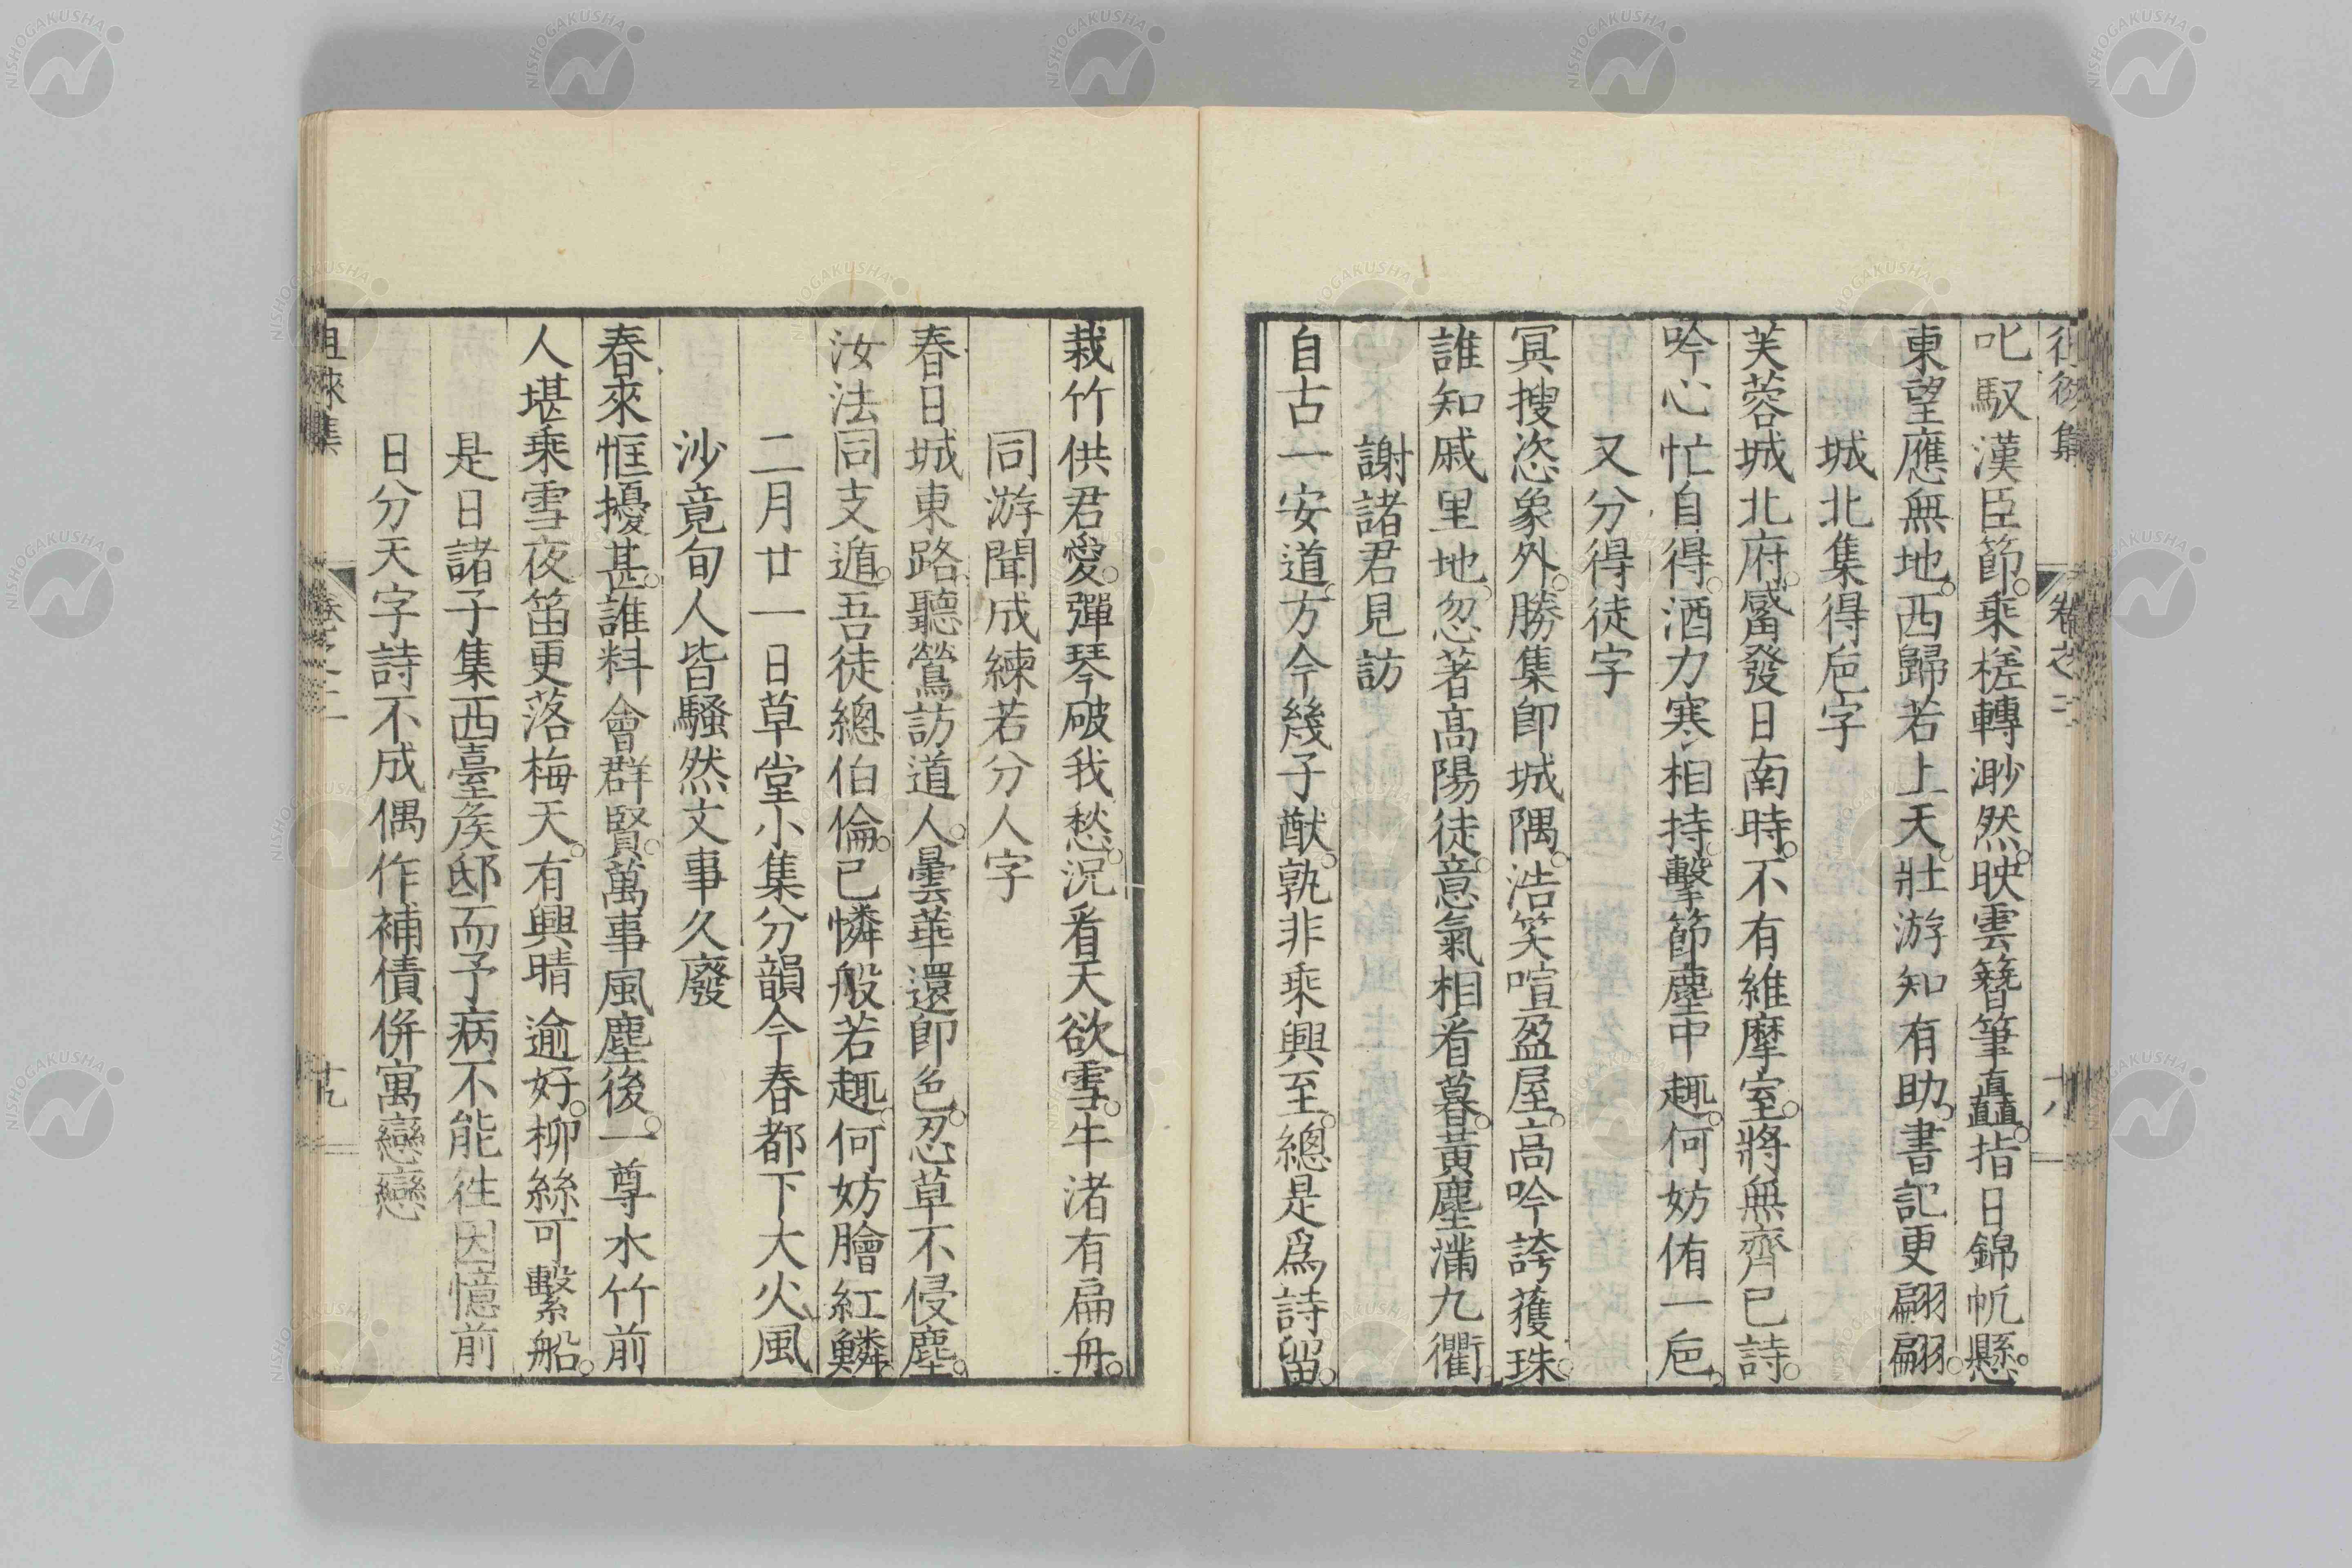 叱馭漢臣節。乘槎轉渺然。映雲簪筆矗。指日錦帆懸。
東望應無地。西歸若上天。壯游知有助。書記更翩翩。
城北集得巵字
芙蓉城北府。觱發日南時。不有維摩室。將無齊已詩。
吟心忙自得。酒力寒相持。擊節塵中趣。何妨侑一巵。
又分得徒字
冥搜恣象外。勝集卽城隅。浩笑喧盈屋。高吟誇獲珠。
誰知戚里地。忽著高陽徒。意氣相看暮。黃塵滿九衢。
謝諸君見訪
自古一安道。方今幾子猷。孰非乘興至。總是爲詩留。
栽竹供君愛。彈琴破我愁。況看天欲雪。牛渚有扁舟。
同游聞成練若分人字
春日城東路。聽鶯訪道人。曇華還卽色。忍草不侵塵。
汝法同支遁。吾徒總伯倫。已憐般若趣。何妨膾紅鱗。
二月廿一日草堂小集分韻今春都下大火風
沙竟旬人皆騷然文事久廢
春來恇擾甚。誰料會群賢。萬事風塵後。一尊水竹前。
人堪乘雪夜。笛更落梅天。有興晴逾好。柳絲可繫船。
是日諸子集西臺矦邸而予病不能往因憶前
日分天字詩不成偶作補債併寓戀戀
徂徠集
卷之二
十九